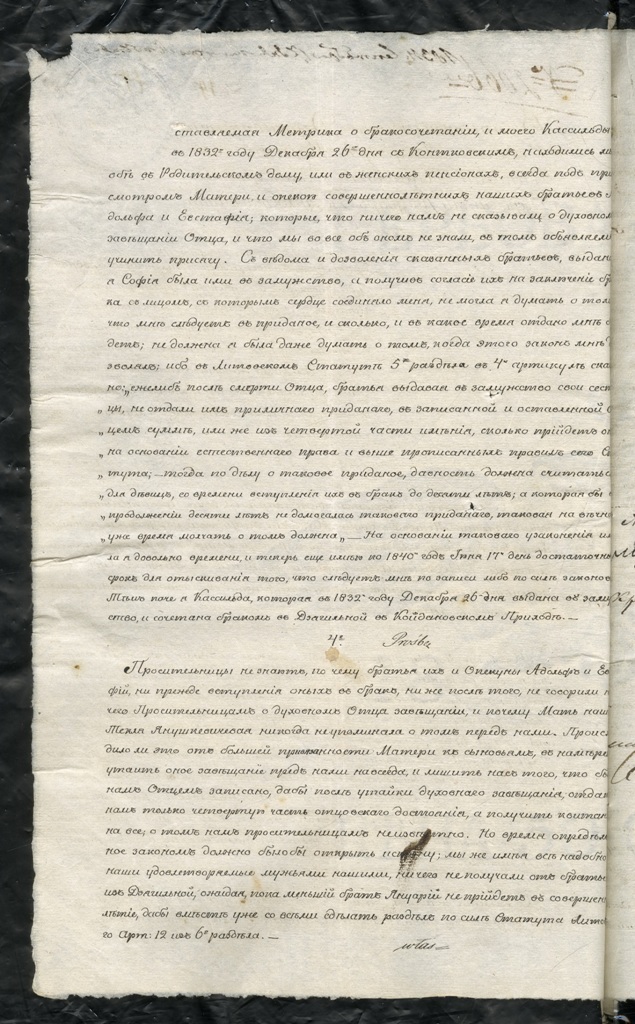 ставляемая Метрика о бракосочетаніи, и моего Кассильды
въ 1832мъ году Декабря 26го дня съ Контковскимъ, находились
въ Родительскомъ дому, или въ женскихъ пенсіонахъ, всегда подъ
смотромъ Матери, и опекою совершеннолѣтнихъ нашихъ братьевъ
дольфа и Евстафія; которые, что ничего намъ не сказывали о духовномъ
завѣщаніи Отца, и что мы во все объ ономъ не знали, въ томъ обѣявляемъ
учинить присягу. Съ вѣдома и дозволенія сказанныхъ братьевъ, выдана
я Софія была ими въ замужство, и получивъ согласіе ихъ на заключеніе
ка съ лицомъ, съ которымъ сердце соединяло меня, не могла я думать о томъ
что мнѣ слѣдуетъ въ приданое, и сколько, и въ какое время отдано мнѣ
детъ; не должна я была даже думать о томъ, когда этого законъ мнѣ
зволялъ; ибо въ Литовскомъ Статутѣ 5го раздѣла въ 4мъ артикулѣ ска
но: „ежелибъ послѣ смерти Отца, братья выдавая въ замужство свои сес
„ цы, не отдали имъ приличнаго приданаго, въ записанной и оставленной
„ цемъ суммѣ, или же изъ четвертой части имѣнія, сколько прійдетъ
„ на основаніи естественнаго права и выше прописанныхъ правилъ сего
„ тута; — тогда по дѣлу о таковое приданое, давность должна считаться
„ для дѣвицъ, со времени вступленія ихъ въ бракъ до десяти лѣтъ; а которая бы
„ продолженіи десяти лѣтъ не домогалась таковаго приданаго, таковая на вѣчн
„ уже время молчать о томъ должна „ — На основаніи таковаго узаконенія
ла я довольно времени, и теперь еще имѣю по 1840й годъ Іюня 17й день достаточн
срокъ для отыскиванія того, что слѣдуетъ мнѣ по записи либо по силѣ законовъ
Тѣмъ паче я Кассильда, которая въ 1832мъ году Декабря 26го дня выдана въ заму
ство, и сочетана бракомъ въ Дзягильной въ Койдановскомъ Приходѣ. —
4е.
Просительницы не знаютъ, по чему братья ихъ и Опекуны Адольфъ и Ев
фій, ни прежде вступленія оныхъ въ бракъ, ни же послѣ того, не говорили
чего Просительницамъ о духовномъ Отца завѣщаніи, и почему Мать наша
Текля Янушкевичевая никогда не упоминала о томъ передъ нами. Происхо
дило ли это отъ большей привязанности Матери къ сыновьямъ, въ намѣреніи
утаить оное завѣщаніе предъ нами навсегда, и лишить насъ того, что
намъ Отцемъ записано, дабы послѣ утайки духовнаго завѣщанія, отдать
намъ только четвертую часть отцовскаго достоянія, а получить квитан
на все; о томъ намъ просительницамъ неизвѣстно. Но время опредѣлен
ное закономъ должно было бы открыть истину; мы же имѣя всѣ надобно
наши удовлетворяемые мужьями нашими, ничего не получали отъ братьевъ
изъ Дзягильной, ожидая, пока меньшій братъ Януарій не прійдетъ въ совершенно
лѣтіе, дабы вмѣстѣ уже со всѣми сдѣлать раздѣлъ по силѣ Статута Литов
го Арт: 12 изъ 6го раздѣла. —